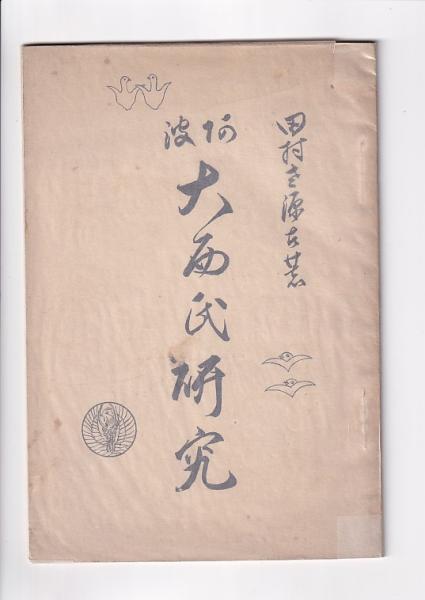 田村左源太著
阿波
大西氏研究